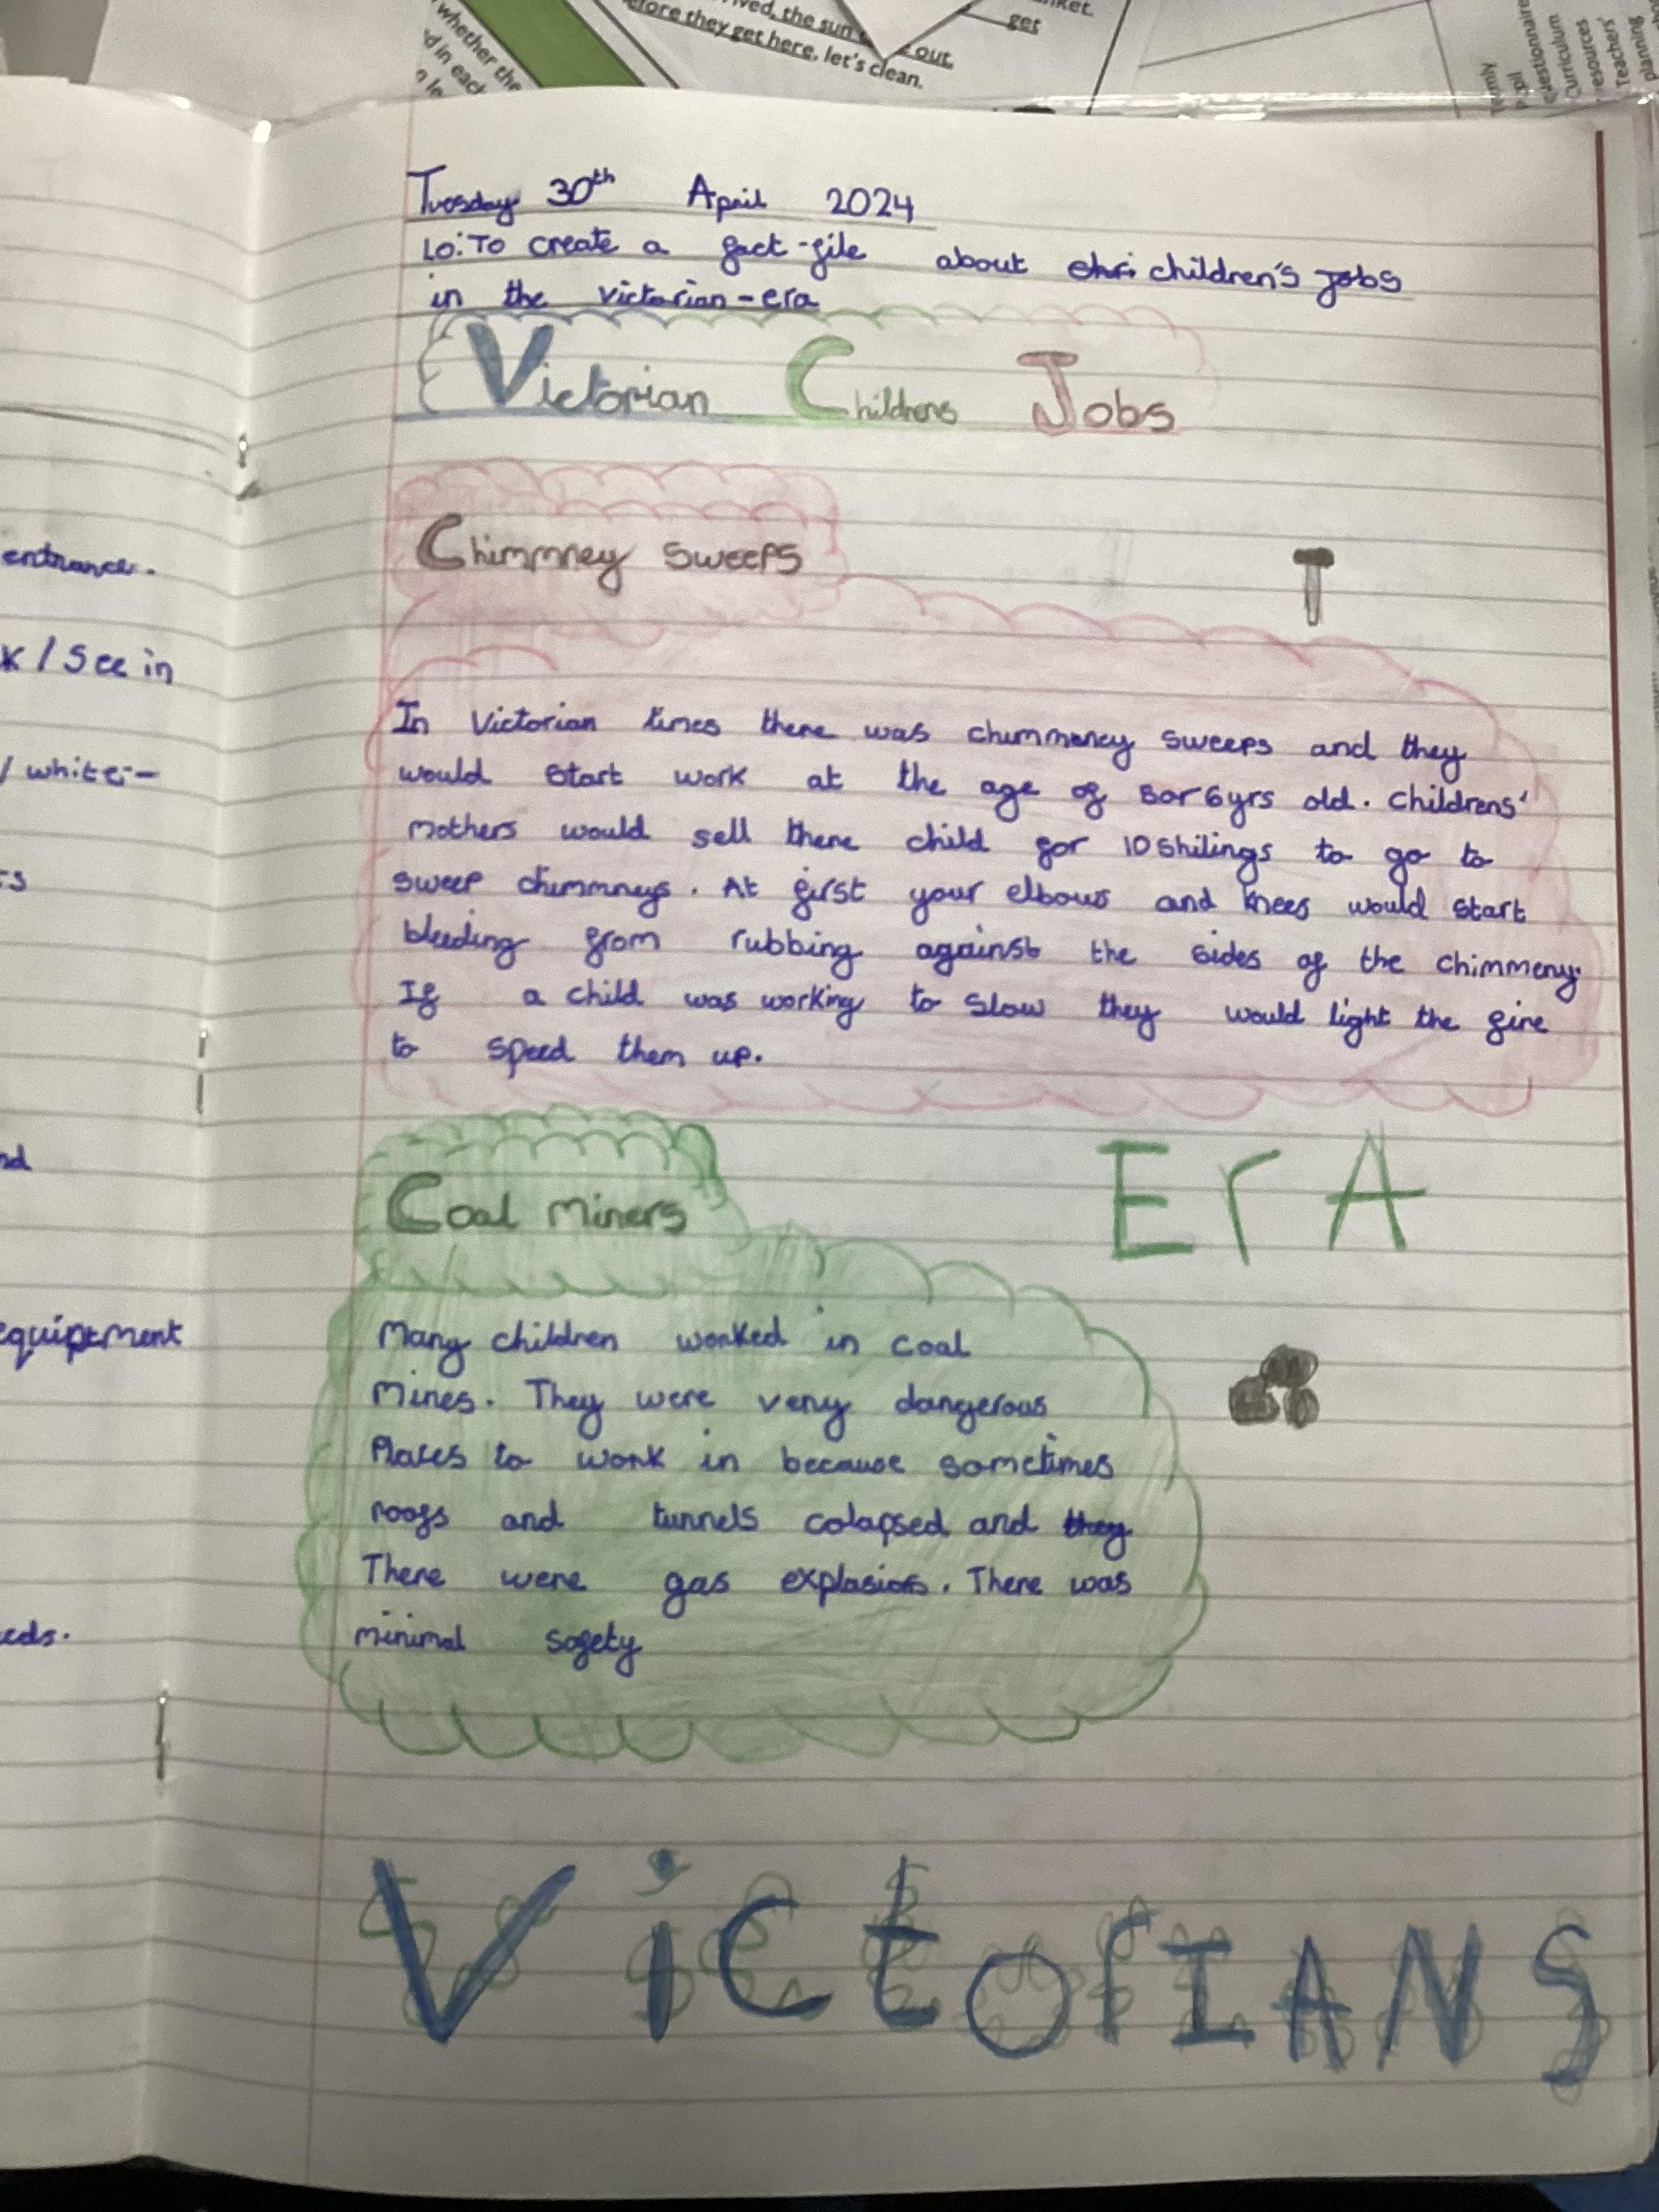 whether the
d in each
n le
ved, the sun
out.
efore they get here, let's clean.
get
nket.
Pupil
questionnaire
Curriculum
resources
Teachers'
planning
entrance.
k / See in
/ white-
ts
nd
equiptment
eds.
Tuesday 30th April 2024
LO: To create a fact-file about children's jobs
in the victorian-era
Victorian Childrens Jobs
Chimmney Sweeps
In Victorian times there was chimmeney sweeps and they
would start work at the age of 5or 6yrs old. Childrens'
mothers would sell there child for 10 shilings to go to
sweep chimmneys. At first your elbows and knees would start
bleeding from rubbing against the sides of the chimmeny.
If a child was working to slow they would light the fire
to speed them up.
ErA
Coal miners
Many children worked in coal
mines. They were very dangerous
Places to work in because sometimes
roofs and tunnels colapsed and they
There were gas explosions. There was
minimal safety
VictorIANS